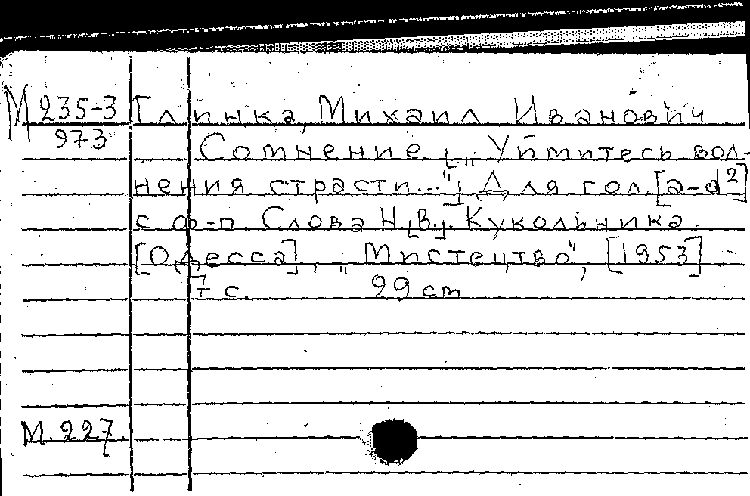 М 235-3 Глинка, Михаил Иванович
973
Сомнение [„Уймитесь вол-
нения страсти..."] Для гол. [a-d²]
с ф-п. Слова Н. [В.] Кукольника.
[Одесса], „Мистецтво", [1953]
7 с. 29 cm
М. 227.